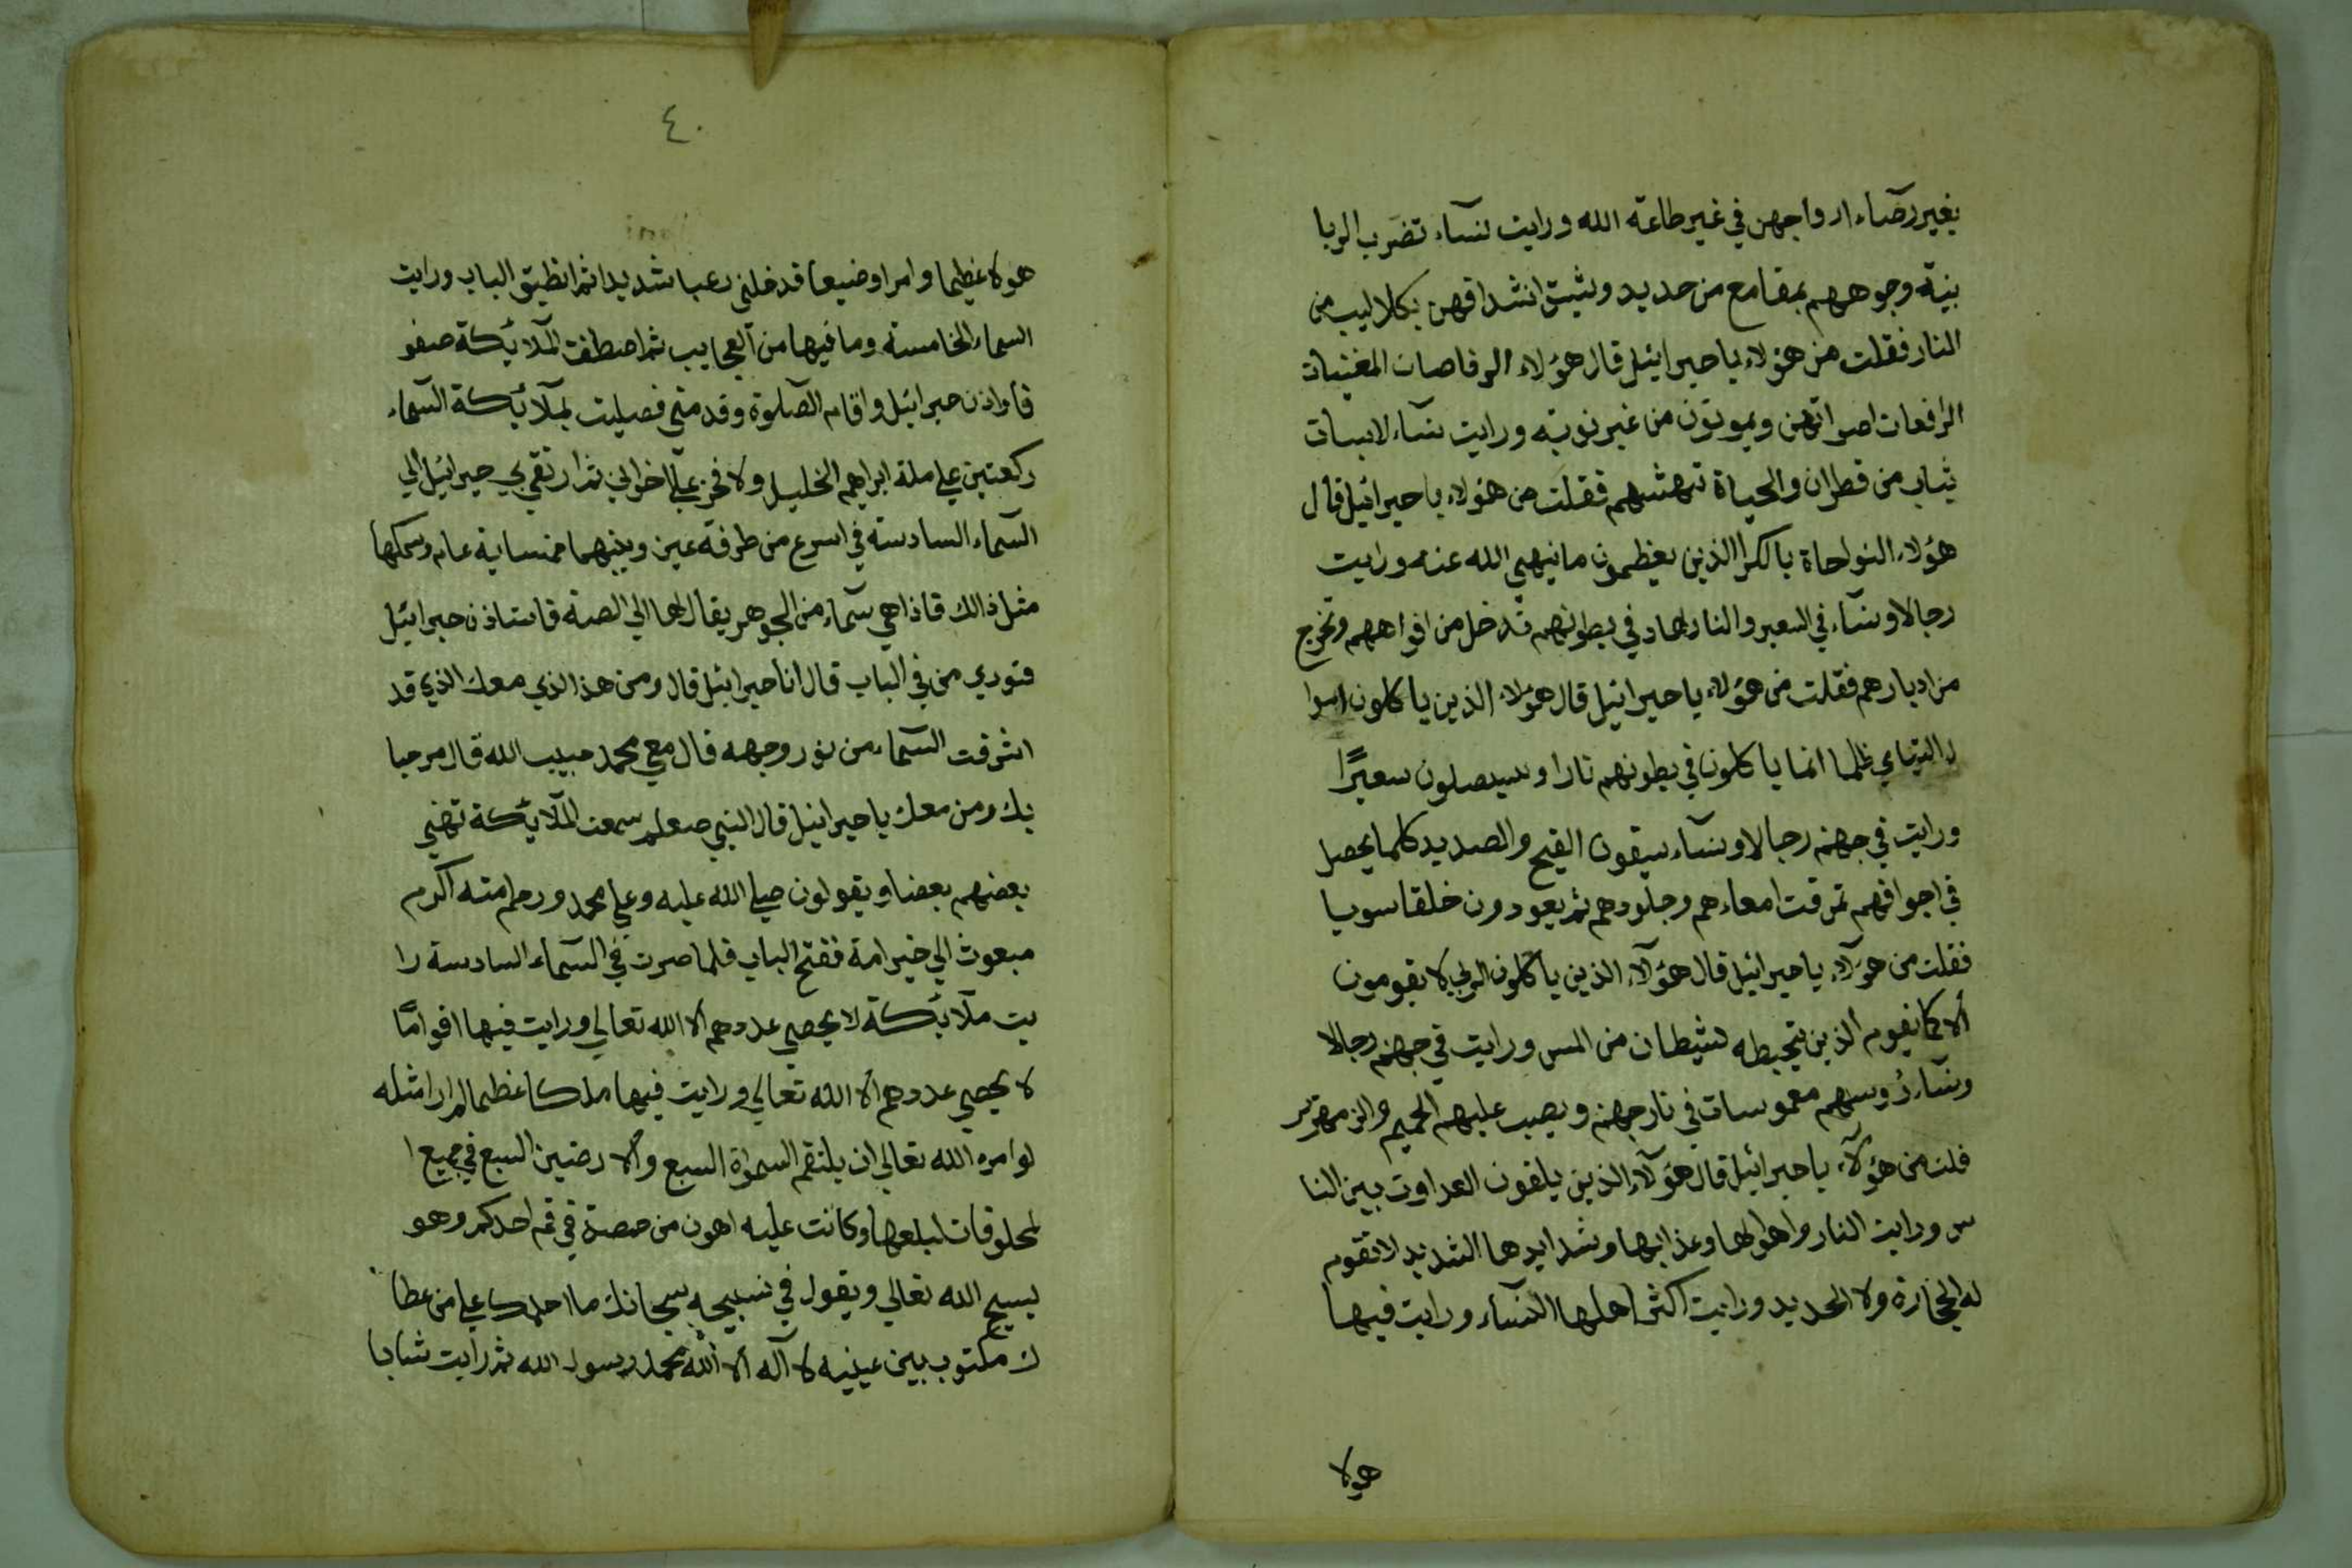 بغير رضاء ازواجهن في غير طاعة الله ورايت نساء تضرب الزبا
نية وجوههم بمقامع من حديد وتشق اشداقهن بكلاليب من
النار فقلت من هؤلاء يا جبرائيل قال هؤلاء الرقاصات المغنيات
الرافعات اصواتهن ويموتون من غير توبة ورايت نساء لابسات
ثياب من قطران والحياة تنهشهم فقلت من هؤلاء يا جبرائيل قال
هؤلاء النواحاة الذين يعظمون ما نهي الله عنه ورايت
رجالا ونساء في السعير والنار في بطونهم تدخل من افواههم وتخرج
من ادبارهم فقلت من هؤلاء يا جبرائيل قال هؤلاء الذين ياكلون اموا
ل اليتامي ظلما انما ياكلون في بطونهم نارا وسيصلون سعيرًا
ورايت في جهنم رجالا ونساء يسقون القيح والصديد كلما يحصل
في اجوافهم تمزقت امعاءهم وجلودهم ثم يعودون خلقا سويا
فقلت من هؤلاء يا جبرائيل قال هؤلآء الذين ياكلون الربي لا يقومون
ألا كما يقوم ألذين يتخبطه لشيطان من المس ورايت في جهنم رجالا
ونساء رؤسهم مغموسات في نار جهنم ويصب عليهم الحميم والزمهرير
قلت من هؤلآء يا جبرائيل قال هؤلآء الذين يلقون العداوت بين النا
س ورايت النار واهوالها وعذابها وشدايدها الشديد لا تقوم
له الحجارة ولا الحديد ورايت اكثر اهلها النساء ورايت فيها
هولا
٤٠
هولا عظيما وامرا وضيعا قد خلني رعبا شديدا ثم انطبق الباب ورايت
السماء الخامسة وما فيها من العجايب ثم اصطفت الملآئكة صفو
فا واذن جبرائيل واقام الصلوة وقدمني فصليت بملآئكة السماء
ركعتين علي ملة ابراهيم الخليل ولا فخر علي اخواني ثم ارتقي بي جبرائيل الي
السماء السادسة في اسرع من طرفة عين وبينهما خمسماية عام وسمكها
مثل ذالك فاذا هي سماء من الجوهر يقال لها فاستاذن جبرائيل
فنودي من في الباب قال انا جبرائيل قال ومن هذا الذي معك الذي قد
اشرقت السماء من نور وجهه قال معي محمد حبيب الله قال مرحبا
بك ومن معك يا جبرائيل قال النبي صعلم سمعت الملآئكة تهني
بعضهم بعضا ويقولون صلي الله عليه وعلي محمد اكرم
مبعوث الي خير امة ففتح الباب فلما صرت في السماء السادسة را
يت ملآئكة لا يحصي عددهم ألا الله تعالي ورايت فيها اقوامًا
لا يحصي عددهم ألا الله تعالي ورايت فيها ملكا عظيما لم ارا مثله
لو امره الله تعالي ان يلتقم السمواة السبع وألارضين السبع في جميع ا
لمخلوقات لبلعها وكانت عليه اهون من حمصة في فم احدكم وهو
يسبح الله تعالي ويقول في تسبيحه سبحانك ما احلمك علي من عطا
ك مكتوب بين عينيه لا آله ألا ألله محمد رسول الله ثم رايت شابا